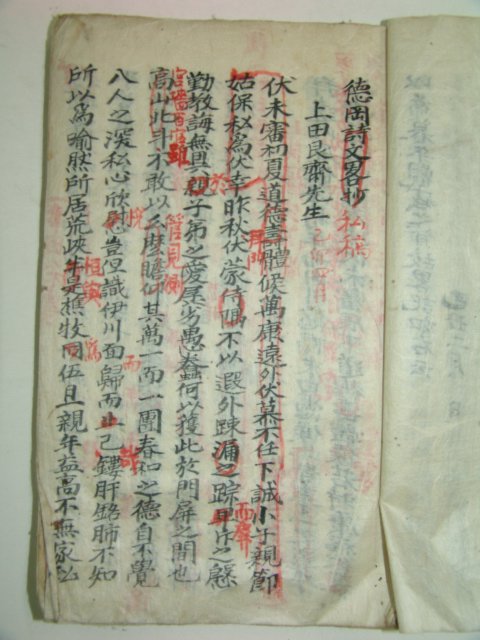 德岡詩文畧抄 私稿
上田艮齋先生
伏未審初夏道德壽體候萬康遠外伏慕不任下誠小子親節
姑保私爲伏幸昨秋伏蒙侍 不以遐外踈漏之踪 之慇
勤敎誨無異親子弟之愛尾 愚蠢何以獲此於門屏之間也
高山北斗不敢以么麽瞻仰其萬一而一團春和之德自不覺
八人之深私心欣慰豈但識伊川面歸而止己鏤肝銘肺不知
所以爲喩然所居荒峽 是樵牧同伍且親年益高不無家
管見
恒
爲
而
西屏